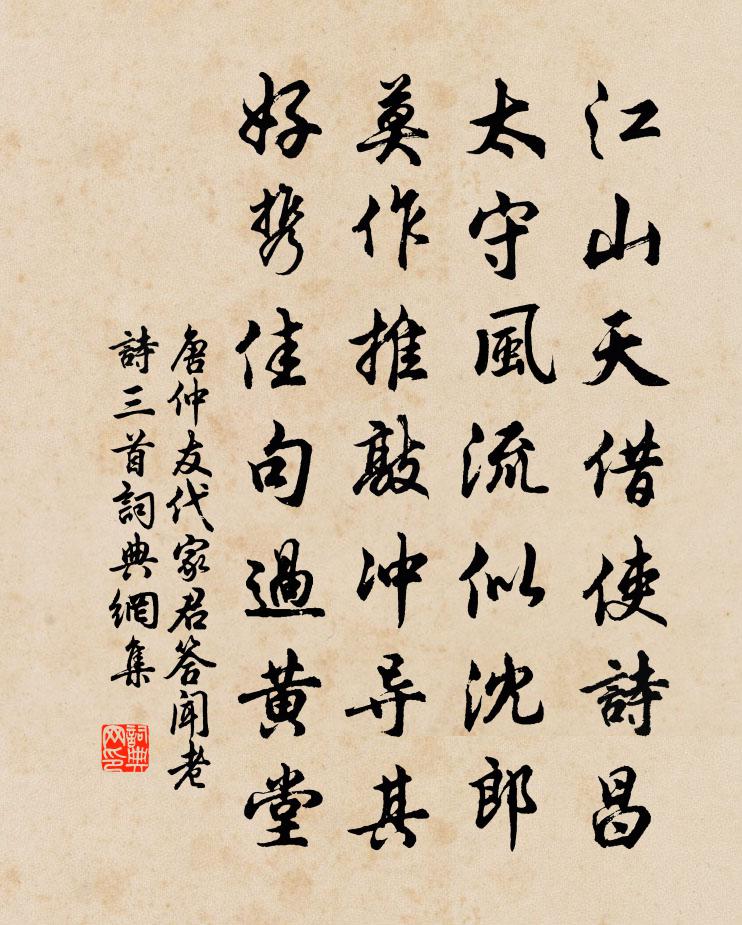 江山天借使詩昌
太守風流似沈郎
莫作推敲冲导其
好携佳句過黄堂
唐仲友代家君答闻老
詩三首詞典網集
詞典网印